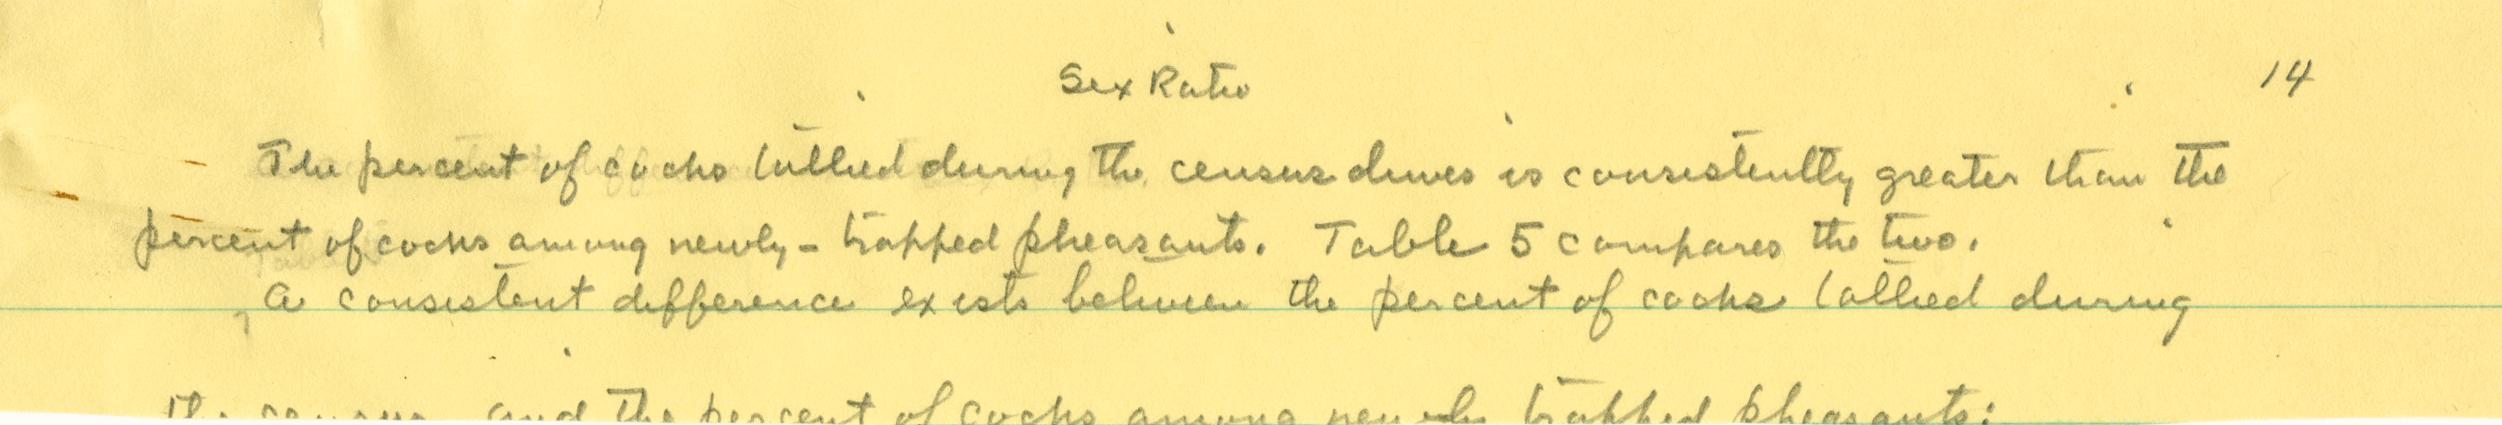 Sex Ratio
14
The percent of cocks tallied during the census drives is consistently greater than the
percent of cocks among newly-trapped pheasants. Table 5 compares the two.
A consistent difference exists between the percent of cocks tallied during
the census and the percent of cocks among newly trapped pheasants: